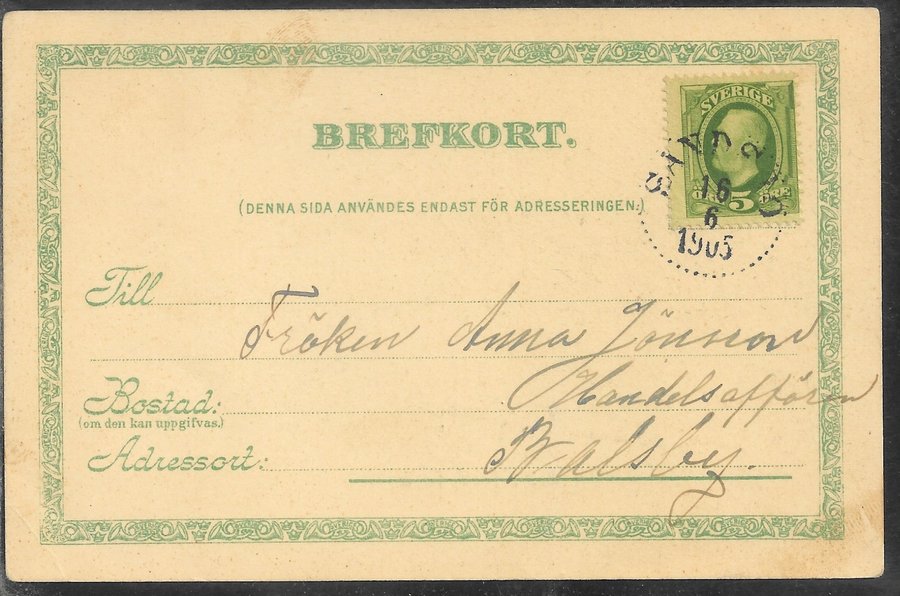 BREFKORT.
(DENNA SIDA ANVÄNDES ENDAST FÖR ADRESSERINGEN.)
SVERIGE
ÖRE 5 ÖRE
16
6
1905
Till
Fröken Anna Jönsson
Handelsaffären
Bostad:
(om den kan uppgifvas.)
Adressort:
Balsby.